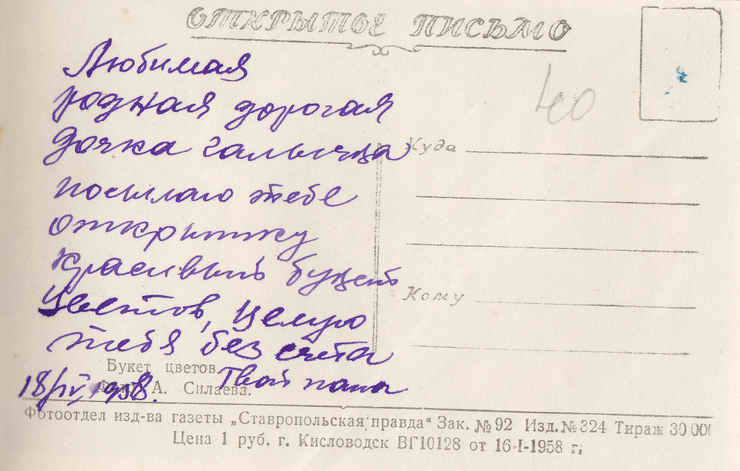 ОТКРЫТОЕ ПИСЬМО
40
Любимая
родная дорогая
дочка галычца
посылаю тебе
открытку
красивый букет
цветов, целую
тебя без счета
Твой папа
18/IV 1958.
Куда
Кому
Букет цветов.
Фото А. Силаева.
Фотоотдел изд-ва газеты „Ставропольская правда" Зак. №92 Изд. №324 Тираж 30 000
Цена 1 руб. г. Кисловодск ВГ10128 от 16-I-1958 г.